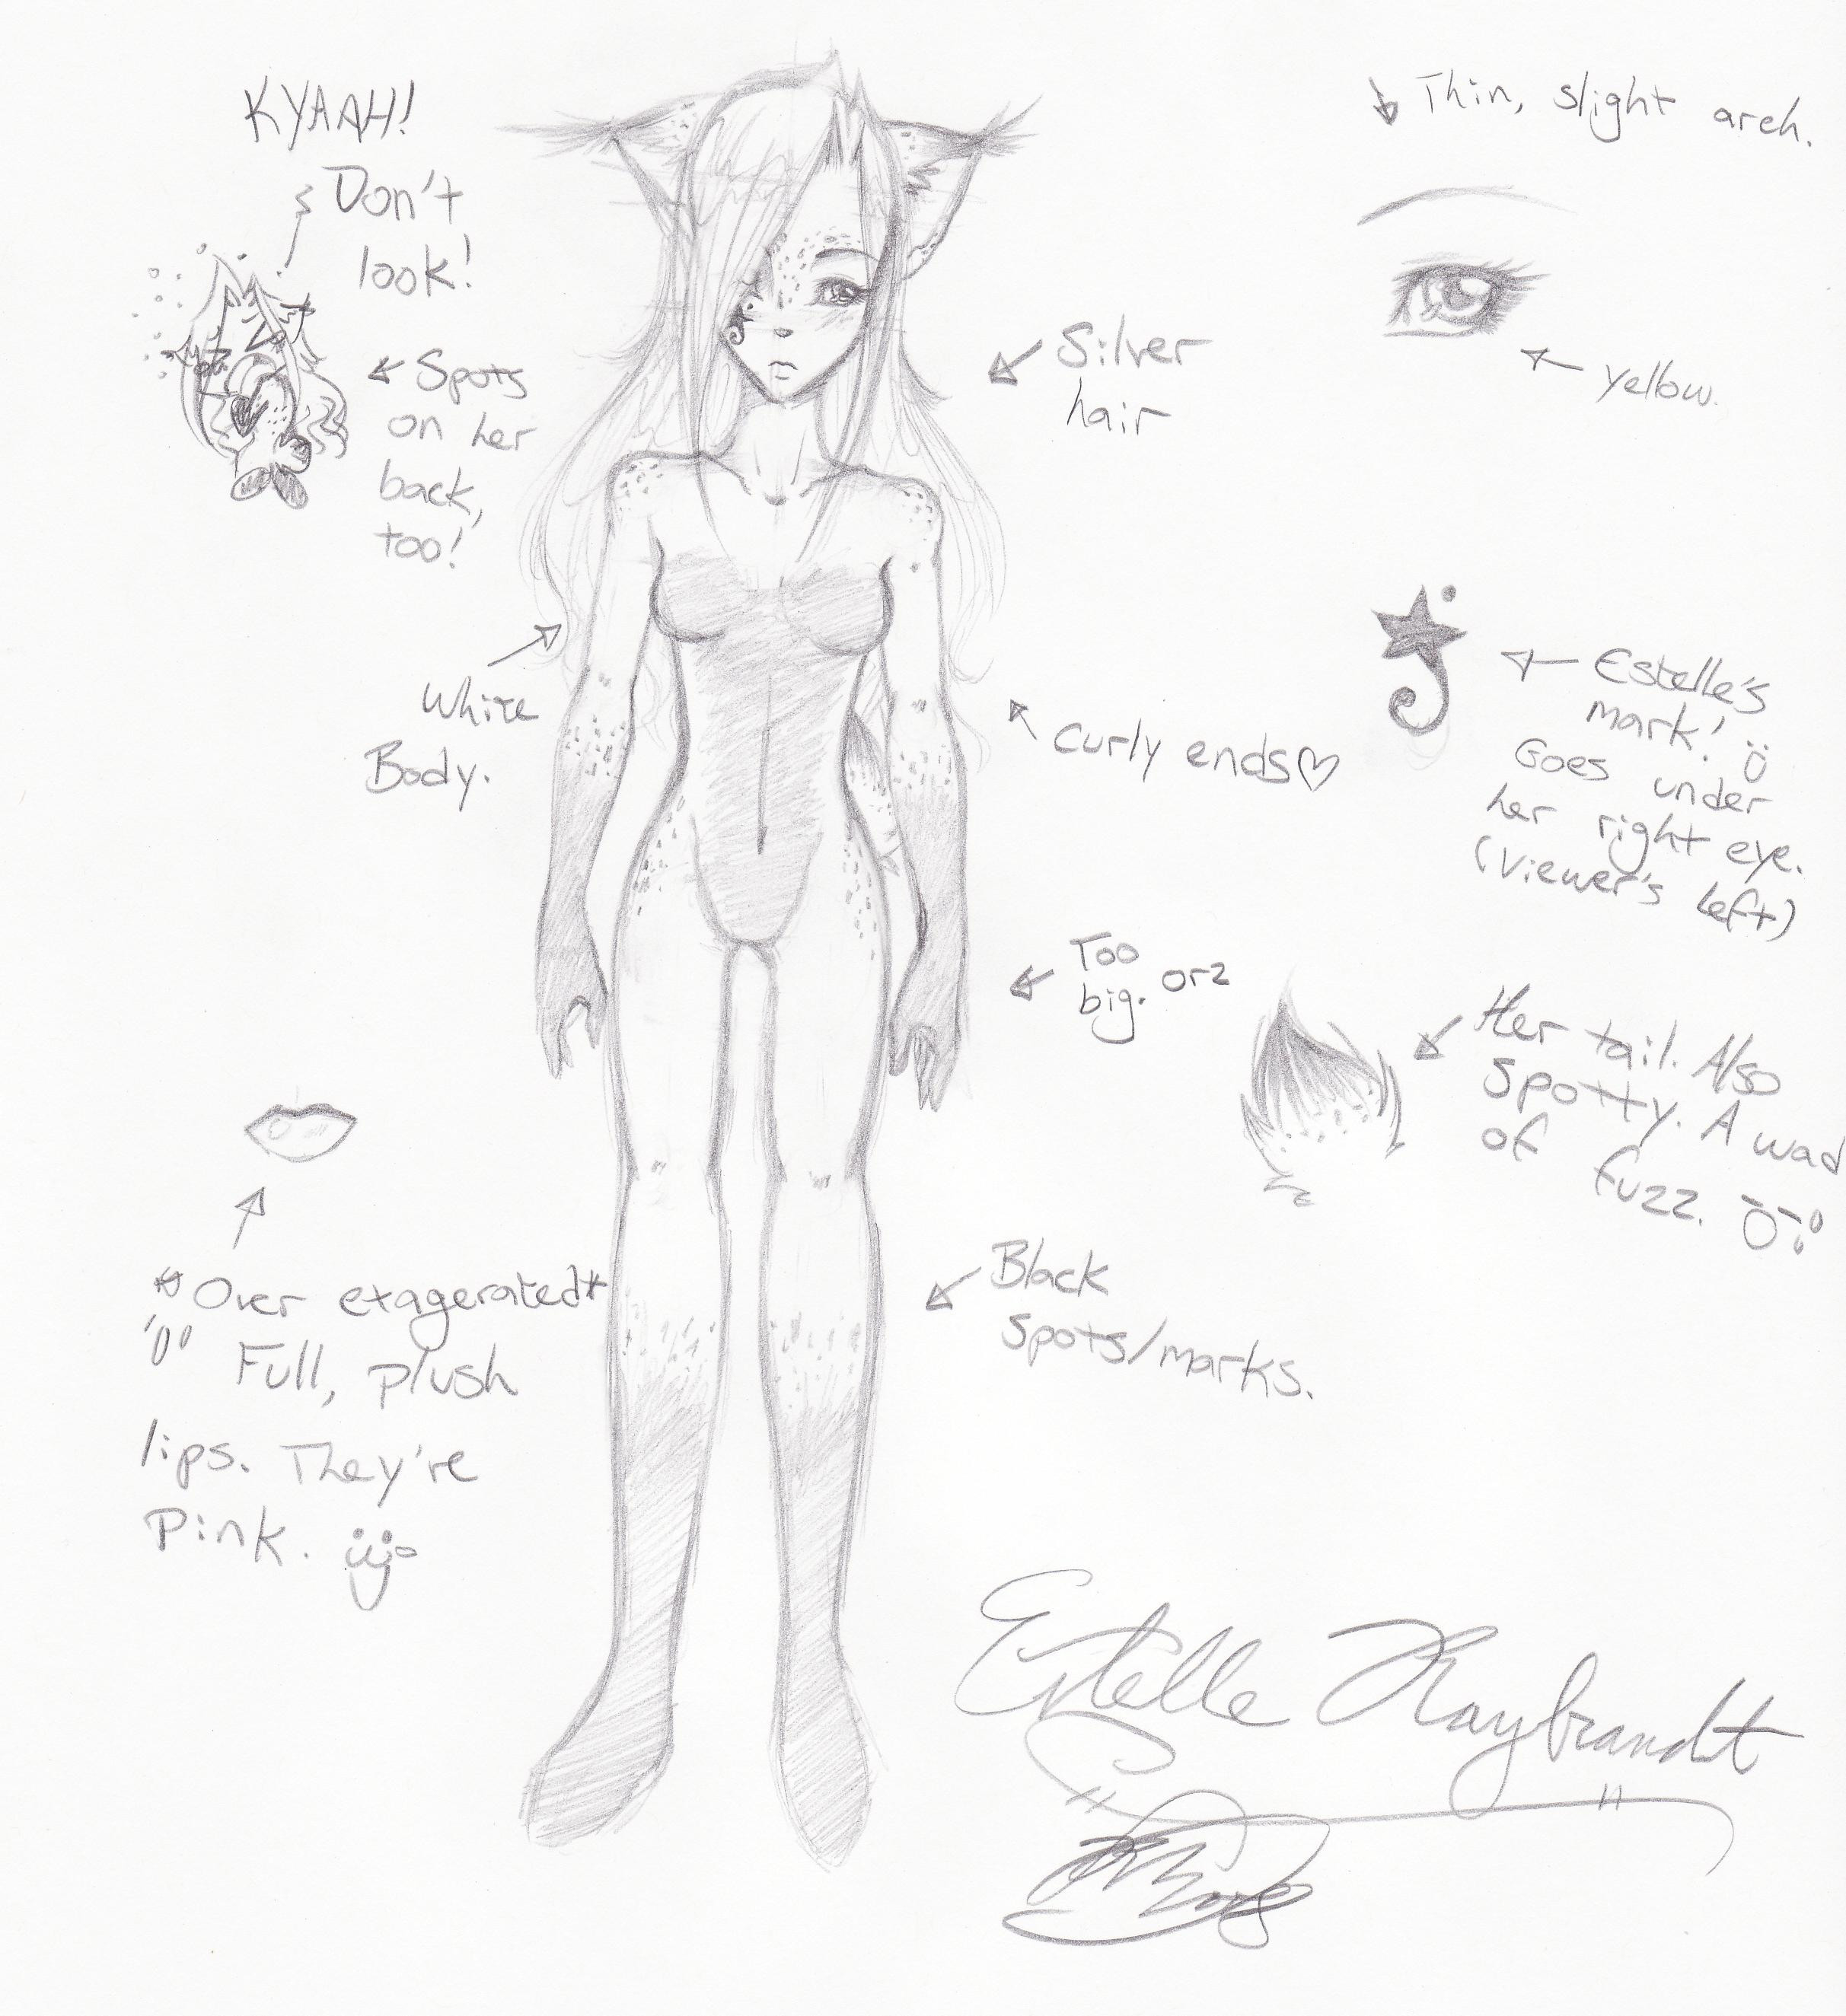 KYAAH!
Don't
look!
Spots
on her
back,
too!
Thin, slight arch.
Silver
hair
yellow.
White
Body.
Curly ends♡
Estelle's
mark!
Goes under
her right eye.
(Viewer's left)
Too
big. orz
Her tail. Also
spotty. A wad
of fuzz.
*Over exagerated*
Full, plush
lips. They're
Pink.
Black
spots/marks.
Estelle